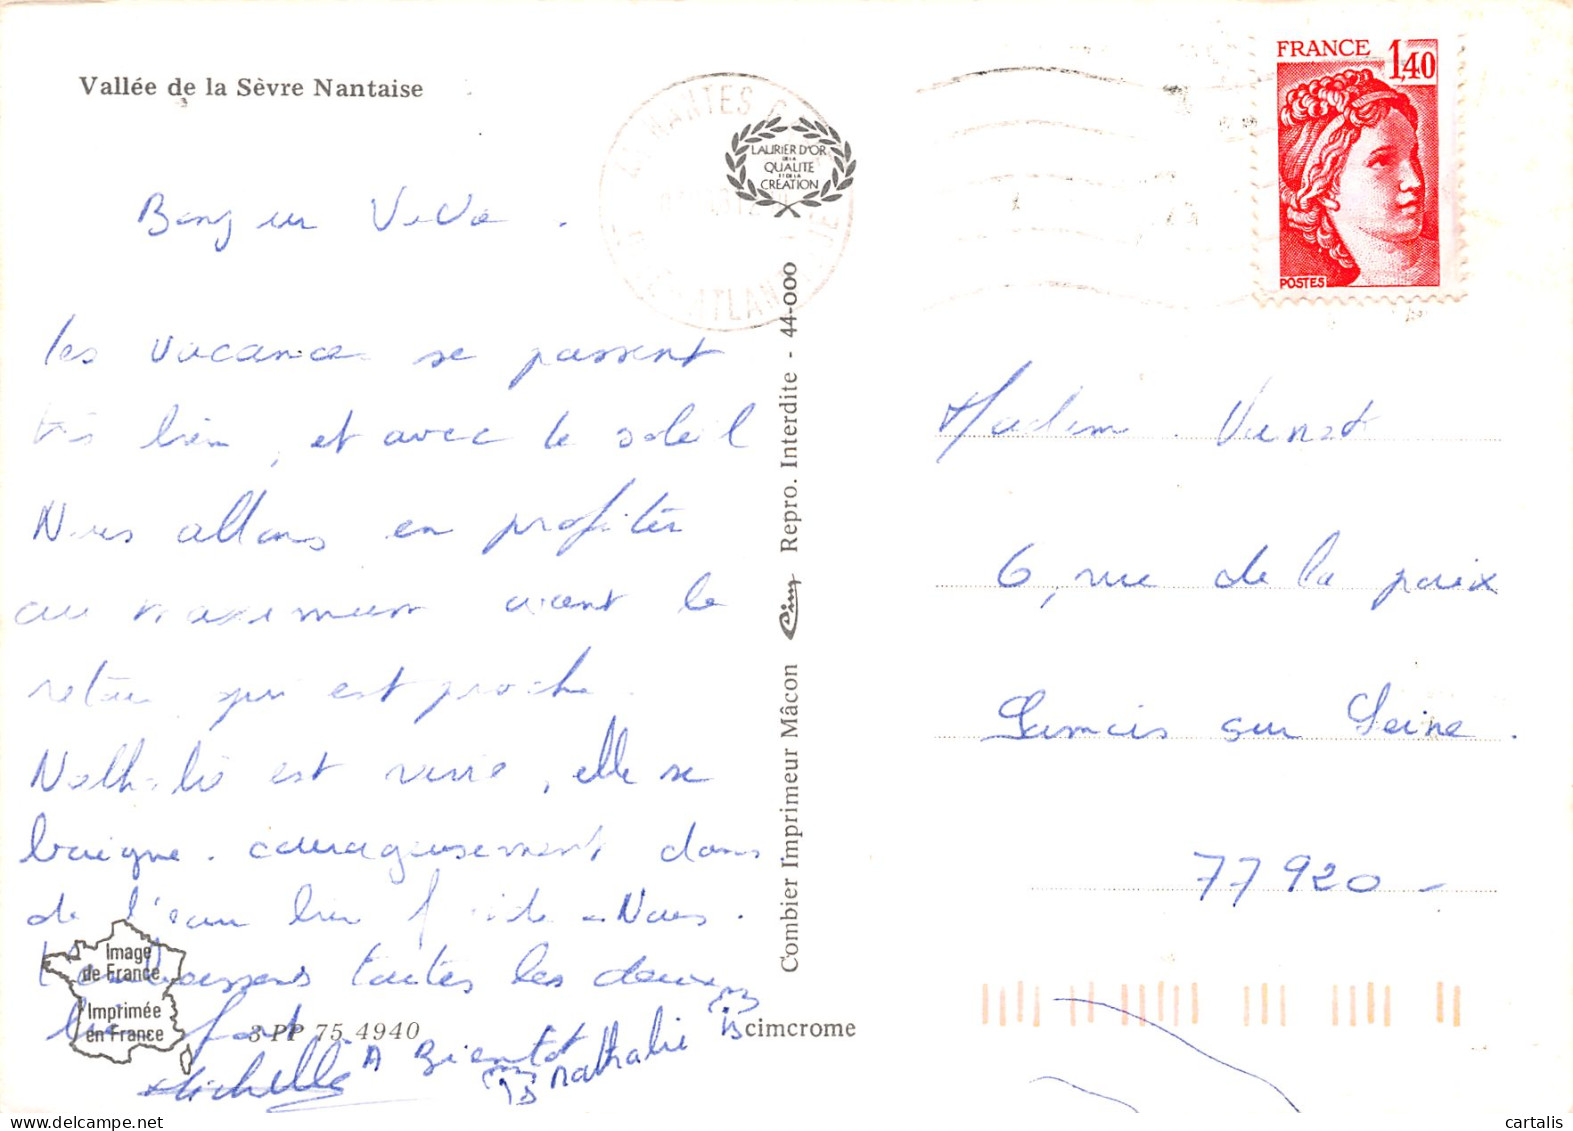 Vallée de la Sèvre Nantaise
NANTES
LAURIER D'OR
DE LA
QUALITE
ET DE LA
CREATION
FRANCE 1,40
POSTES
les vacances se passent
très bien, et avec le soleil
Nous allons en profiter
au maximum avant le
retour qui est proche.
Nathalie est ravie, elle se
baigne. courageusement dans
de l'eau bien froide - Nous.
t'embrassons toutes les deux
bien fort
Michelle
A Bientot
nathalie
Image
de France
Imprimée
en France
3 PP 75 4940
scimcrome
Combier Imprimeur Mâcon Cim Repro. Interdite - 44-000
6, rue de la paix
sur Seine.
77920 -
cartalis